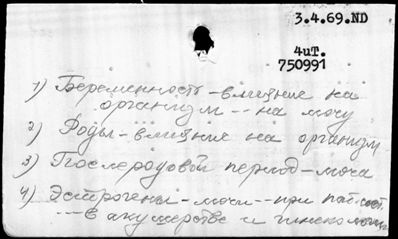 3.4.69.ND
4uT.
750991
1) Беременность - влияние на
организм -- на мочу
2) Роды - влияние на организм
3) Послеродовой период - моча
4) Эстрогены - мочи -- при пат. сост.
--- в акушерстве и гинекологии